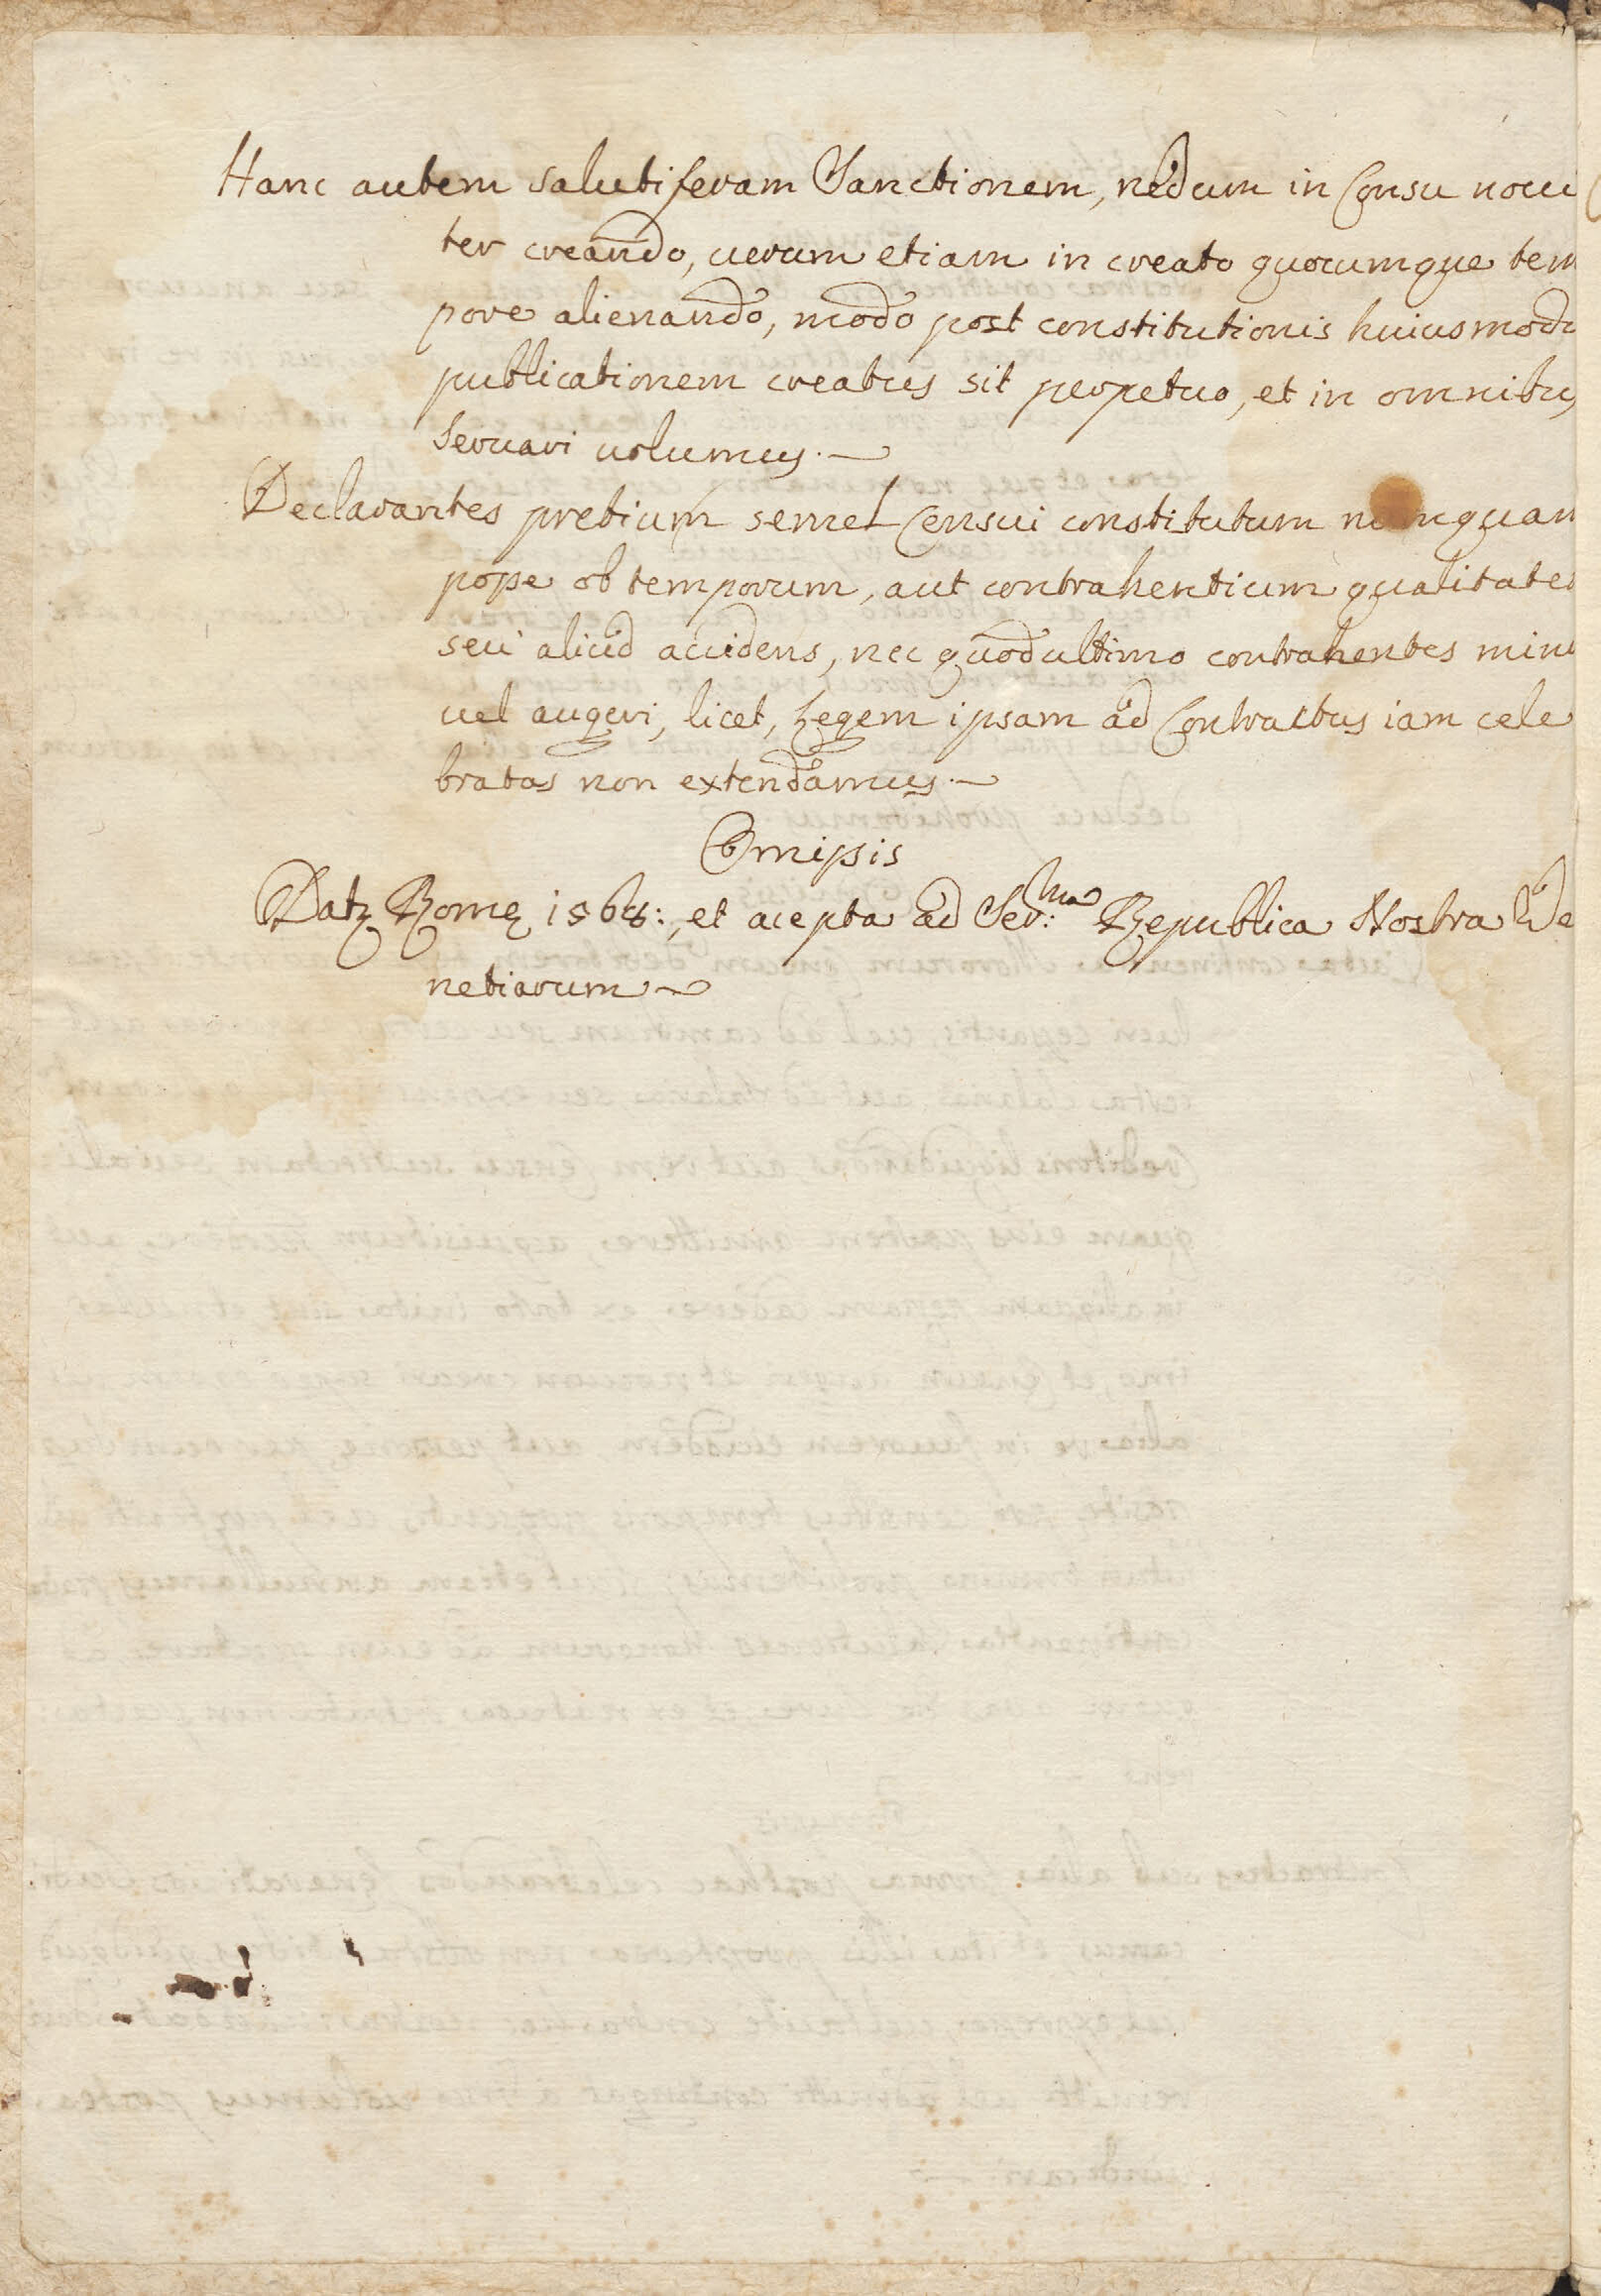 Hanc autem salutiferam Sanctionem, nedum in Censu noui
ter creando, uerum etiam in creato quocumque tem
pore alienando, modo post constitutionis huiusmodi
publicationem creatus sit perpetuo, et in omnibus
seruari uolumus.
Declarantes pretium semel Censui constitutum nunquam
posse ob temporum, aut contrahentium qualitatem
seu aliud accidens, nec quod ultimo contrahentes minui
uel augeri, licet, Legem ipsam ad Contractus iam cele
bratos non extendamus.
Omissis
Datæ Romę et acepta ad Ser:ma Republica Nostra Ve
netiarum